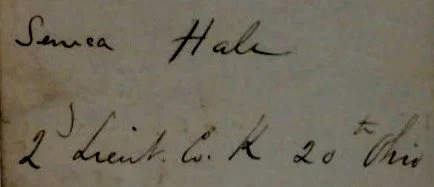 Seneca Hale
2 Lieut. Co. K 20th Ohio